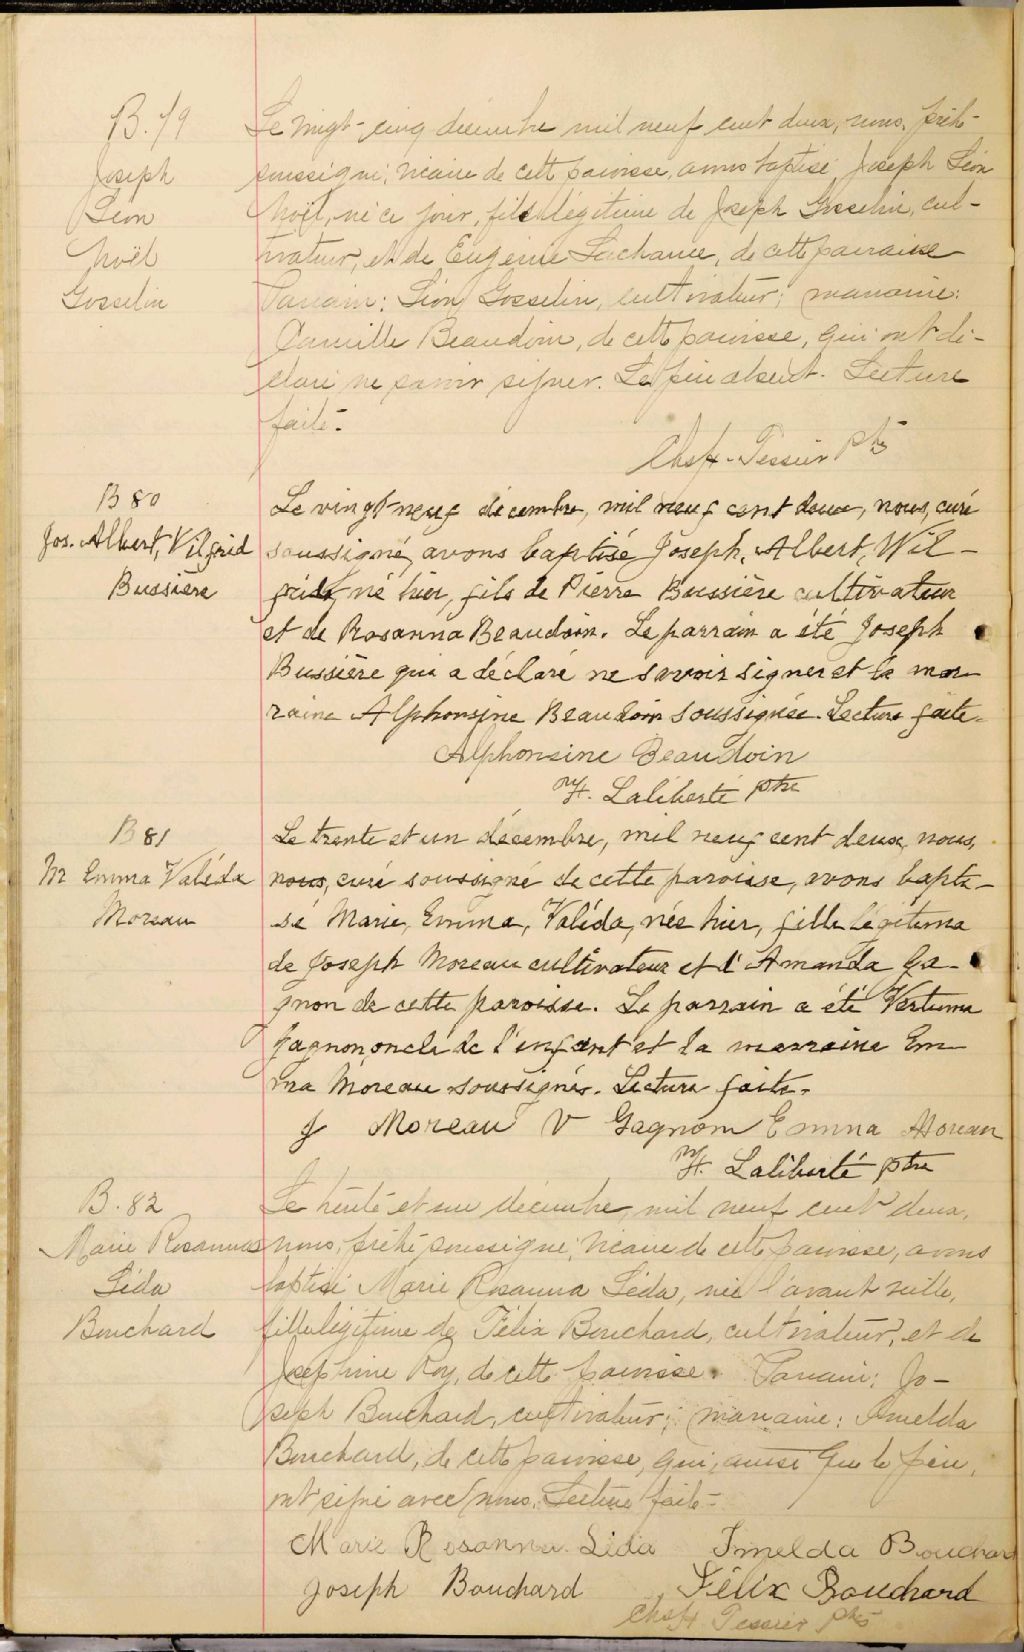 B. 79
Joseph
Léon
Noël
Gosselin
Le vingt-cinq décembre mil neuf cent deux, nous, prêtre
soussigné, vicaire de cette paroisse, avons baptisé Joseph Léon
Noël, né ce jour, fils légitime de Joseph Gosselin, cul-
tivateur, et de Eugénie Lachance, de cette paroisse
Parrain: Léon Gosselin, cultivateur; marraine:
Camille Beaudoin, de cette paroisse, qui ont dé-
claré ne savoir signer. Le père absent. Lecture
faite.
Tessier Ptre
B 80
Jos. Albert, Vilfrid
Bussière
Le vingt neuf décembre, mil neuf cent deux, nous, curé
soussigné, avons baptisé Joseph, Albert, Wil-
frid, né hier, fils de Pierre Bussière cultivateur
et de Rosanna Beaudoin. Le parrain a été Joseph
Bussière qui a déclaré ne savoir signer et la mar-
raine Alphonsine Beaudoin soussignée. Lecture faite.
Alphonsine Beaudoin
H. Laliberté ptre
B 81
M Emma Valéda
Moreau
Le trente et un décembre, mil neuf cent deux, nous,
nous, curé soussigné de cette paroisse, avons bapti-
sé Marie, Emma, Valéda, née hier, fille légitime
de Joseph Moreau cultivateur et d'Amanda Ga-
gnon de cette paroisse. Le parrain a été Vertume
Gagnon oncle de l'enfant et la marraine Em-
ma Moreau soussignés. Lecture faite.
J Moreau V Gagnon Emma Moreau
H. Laliberté ptre
B. 82
Marie Rosanna
Léda
Bouchard
Le trente et un décembre mil neuf cent deux,
nous, prêtre soussigné, vicaire de cette paroisse, avons
baptisé Marie Rosanna Léda, née l'avant veille,
fille légitime de Félix Bouchard, cultivateur, et de
Josephine Roy, de cette paroisse. Parrain: Jo-
seph Bouchard, cultivateur; marraine: Imelda
Bouchard, de cette paroisse, qui, ainsi que le père,
ont signé avec nous. Lecture faite.
Marie Rosanna Lidia Imelda Bouchard
Joseph Bouchard Félix Bouchard
Tessier Ptre